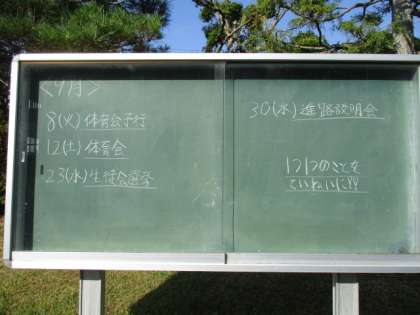 <9月>
8(火)体育会予行
12(土)体育会
23(水)生徒会選挙
30(水)進路説明会
1つ1つのことを
ていねいに!!